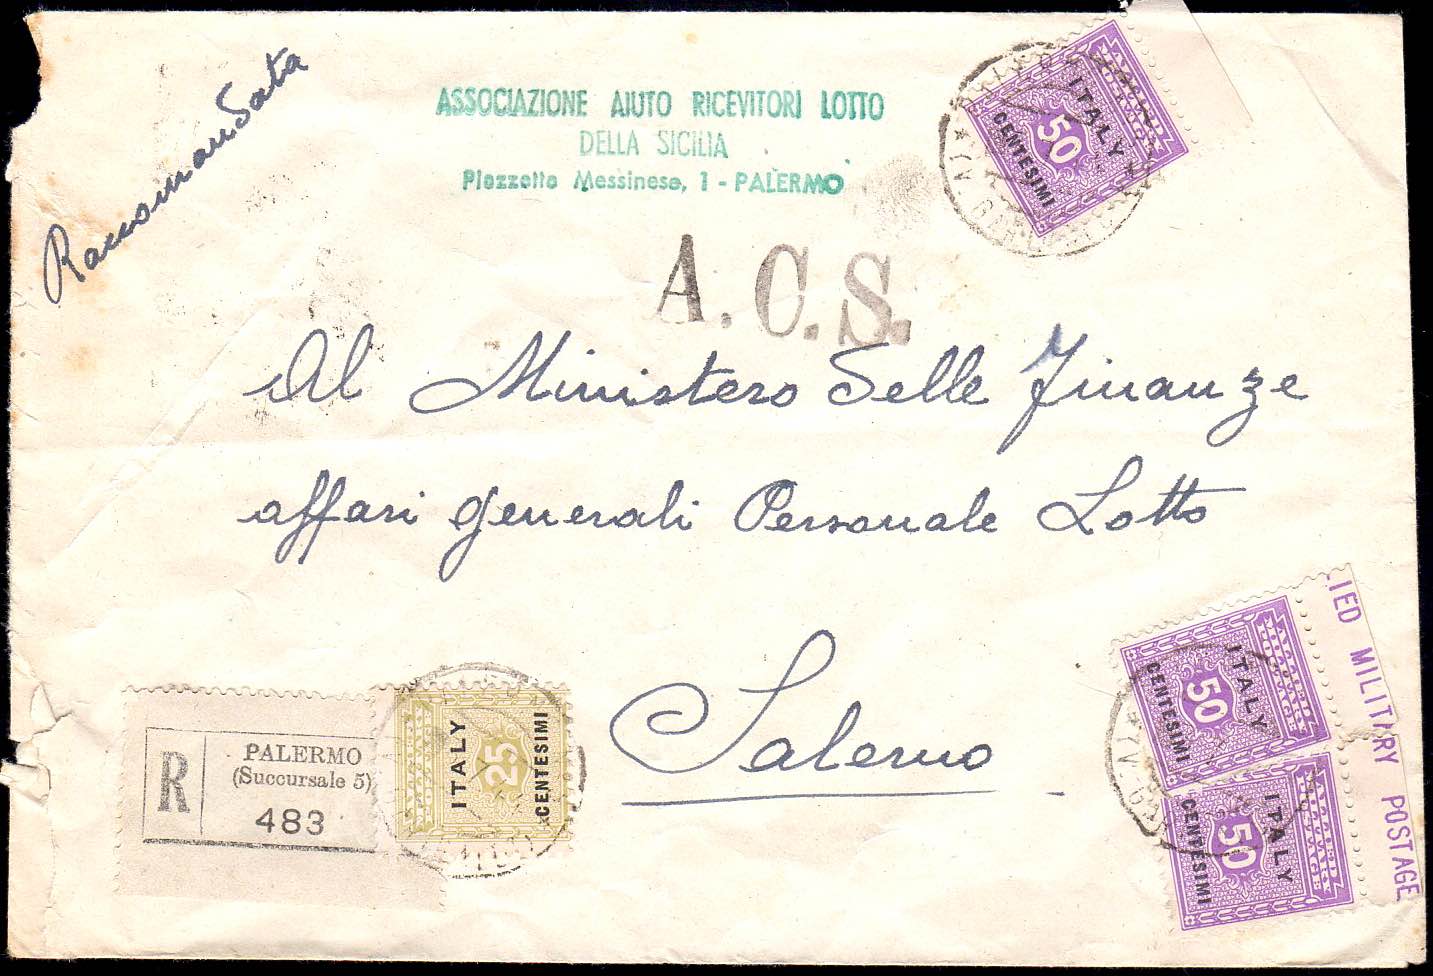 Raccomandata
ASSOCIAZIONE AIUTO RICEVITORI LOTTO
DELLA SICILIA
Piazzetta Messinese, 1 - PALERMO
A.C.S.
ITALY
50
CENTESIMI
Al Ministero delle Finanze
affari generali Personale Lotto
Salerno
R
PALERMO
(Succursale 5)
483
ITALY
25
CENTESIMI
ITALY
50
CENTESIMI
ITALY
50
CENTESIMI
LIED MILITARY POSTAGE